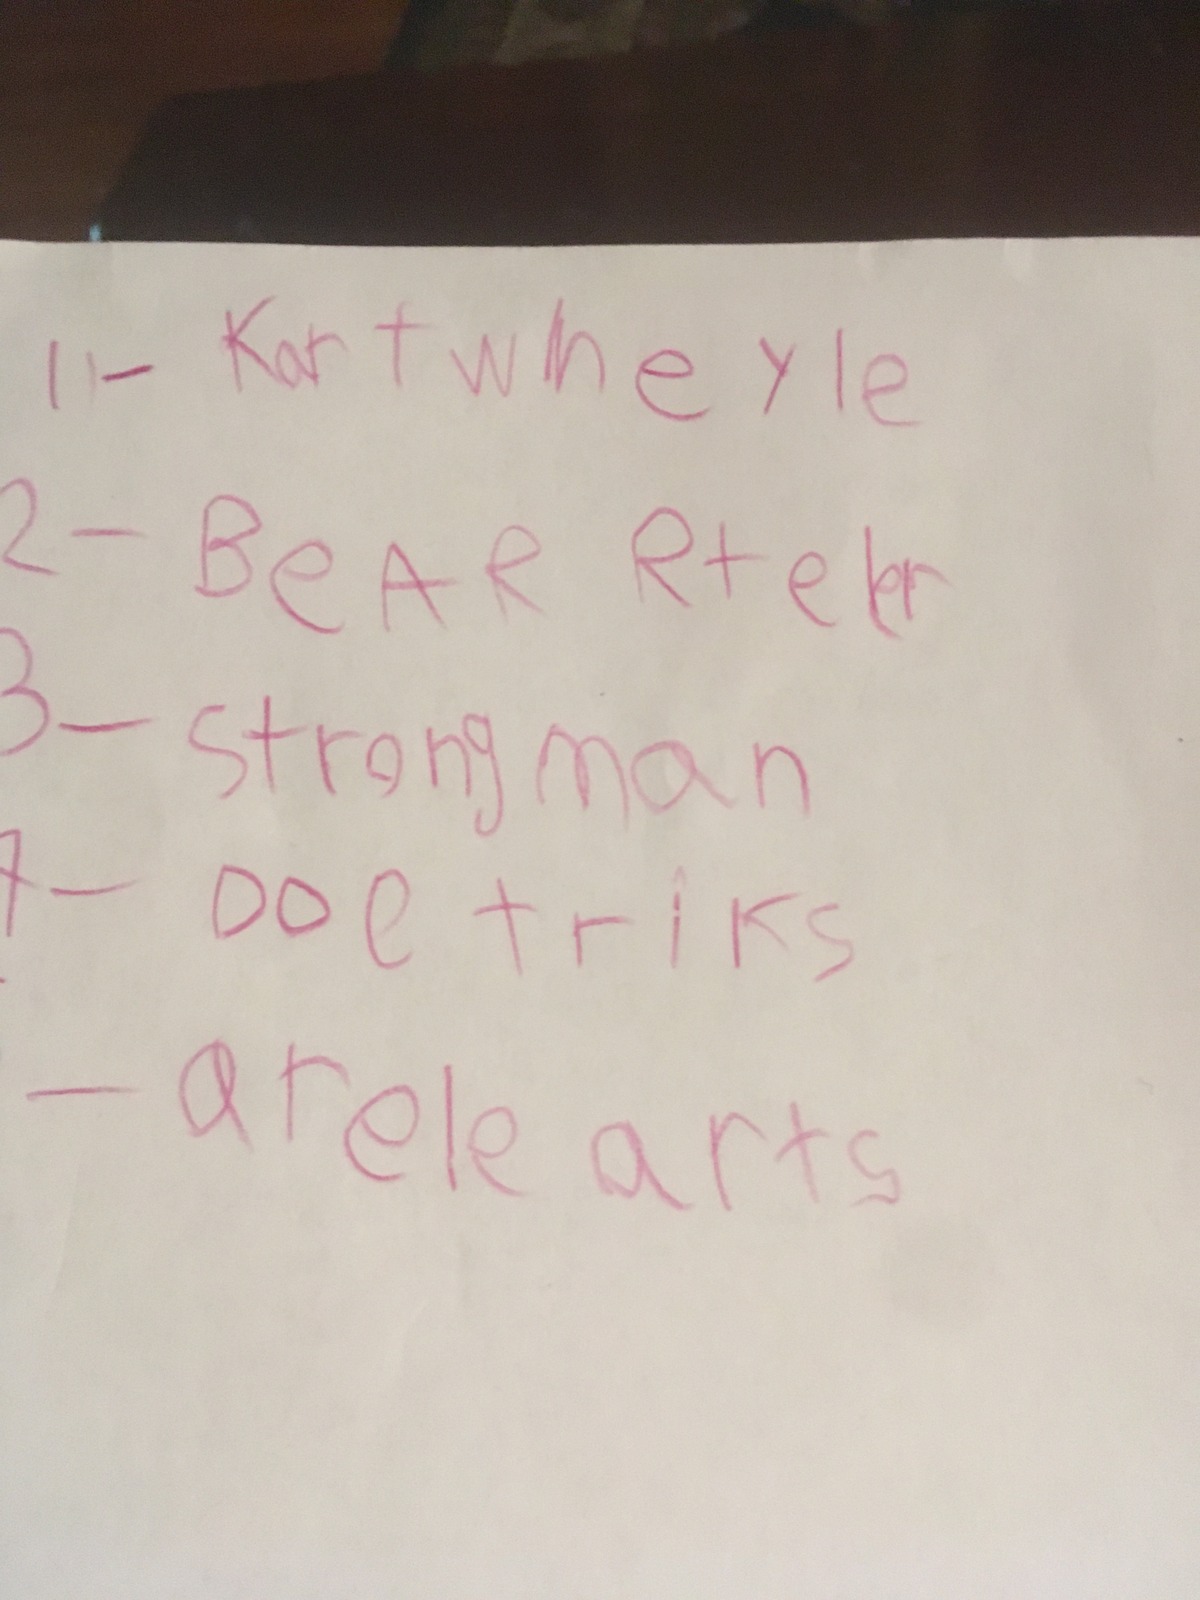 1- Kartwheyle
2- BeAR Rtekr
3- strongman
4- DOE triks
- arele arts